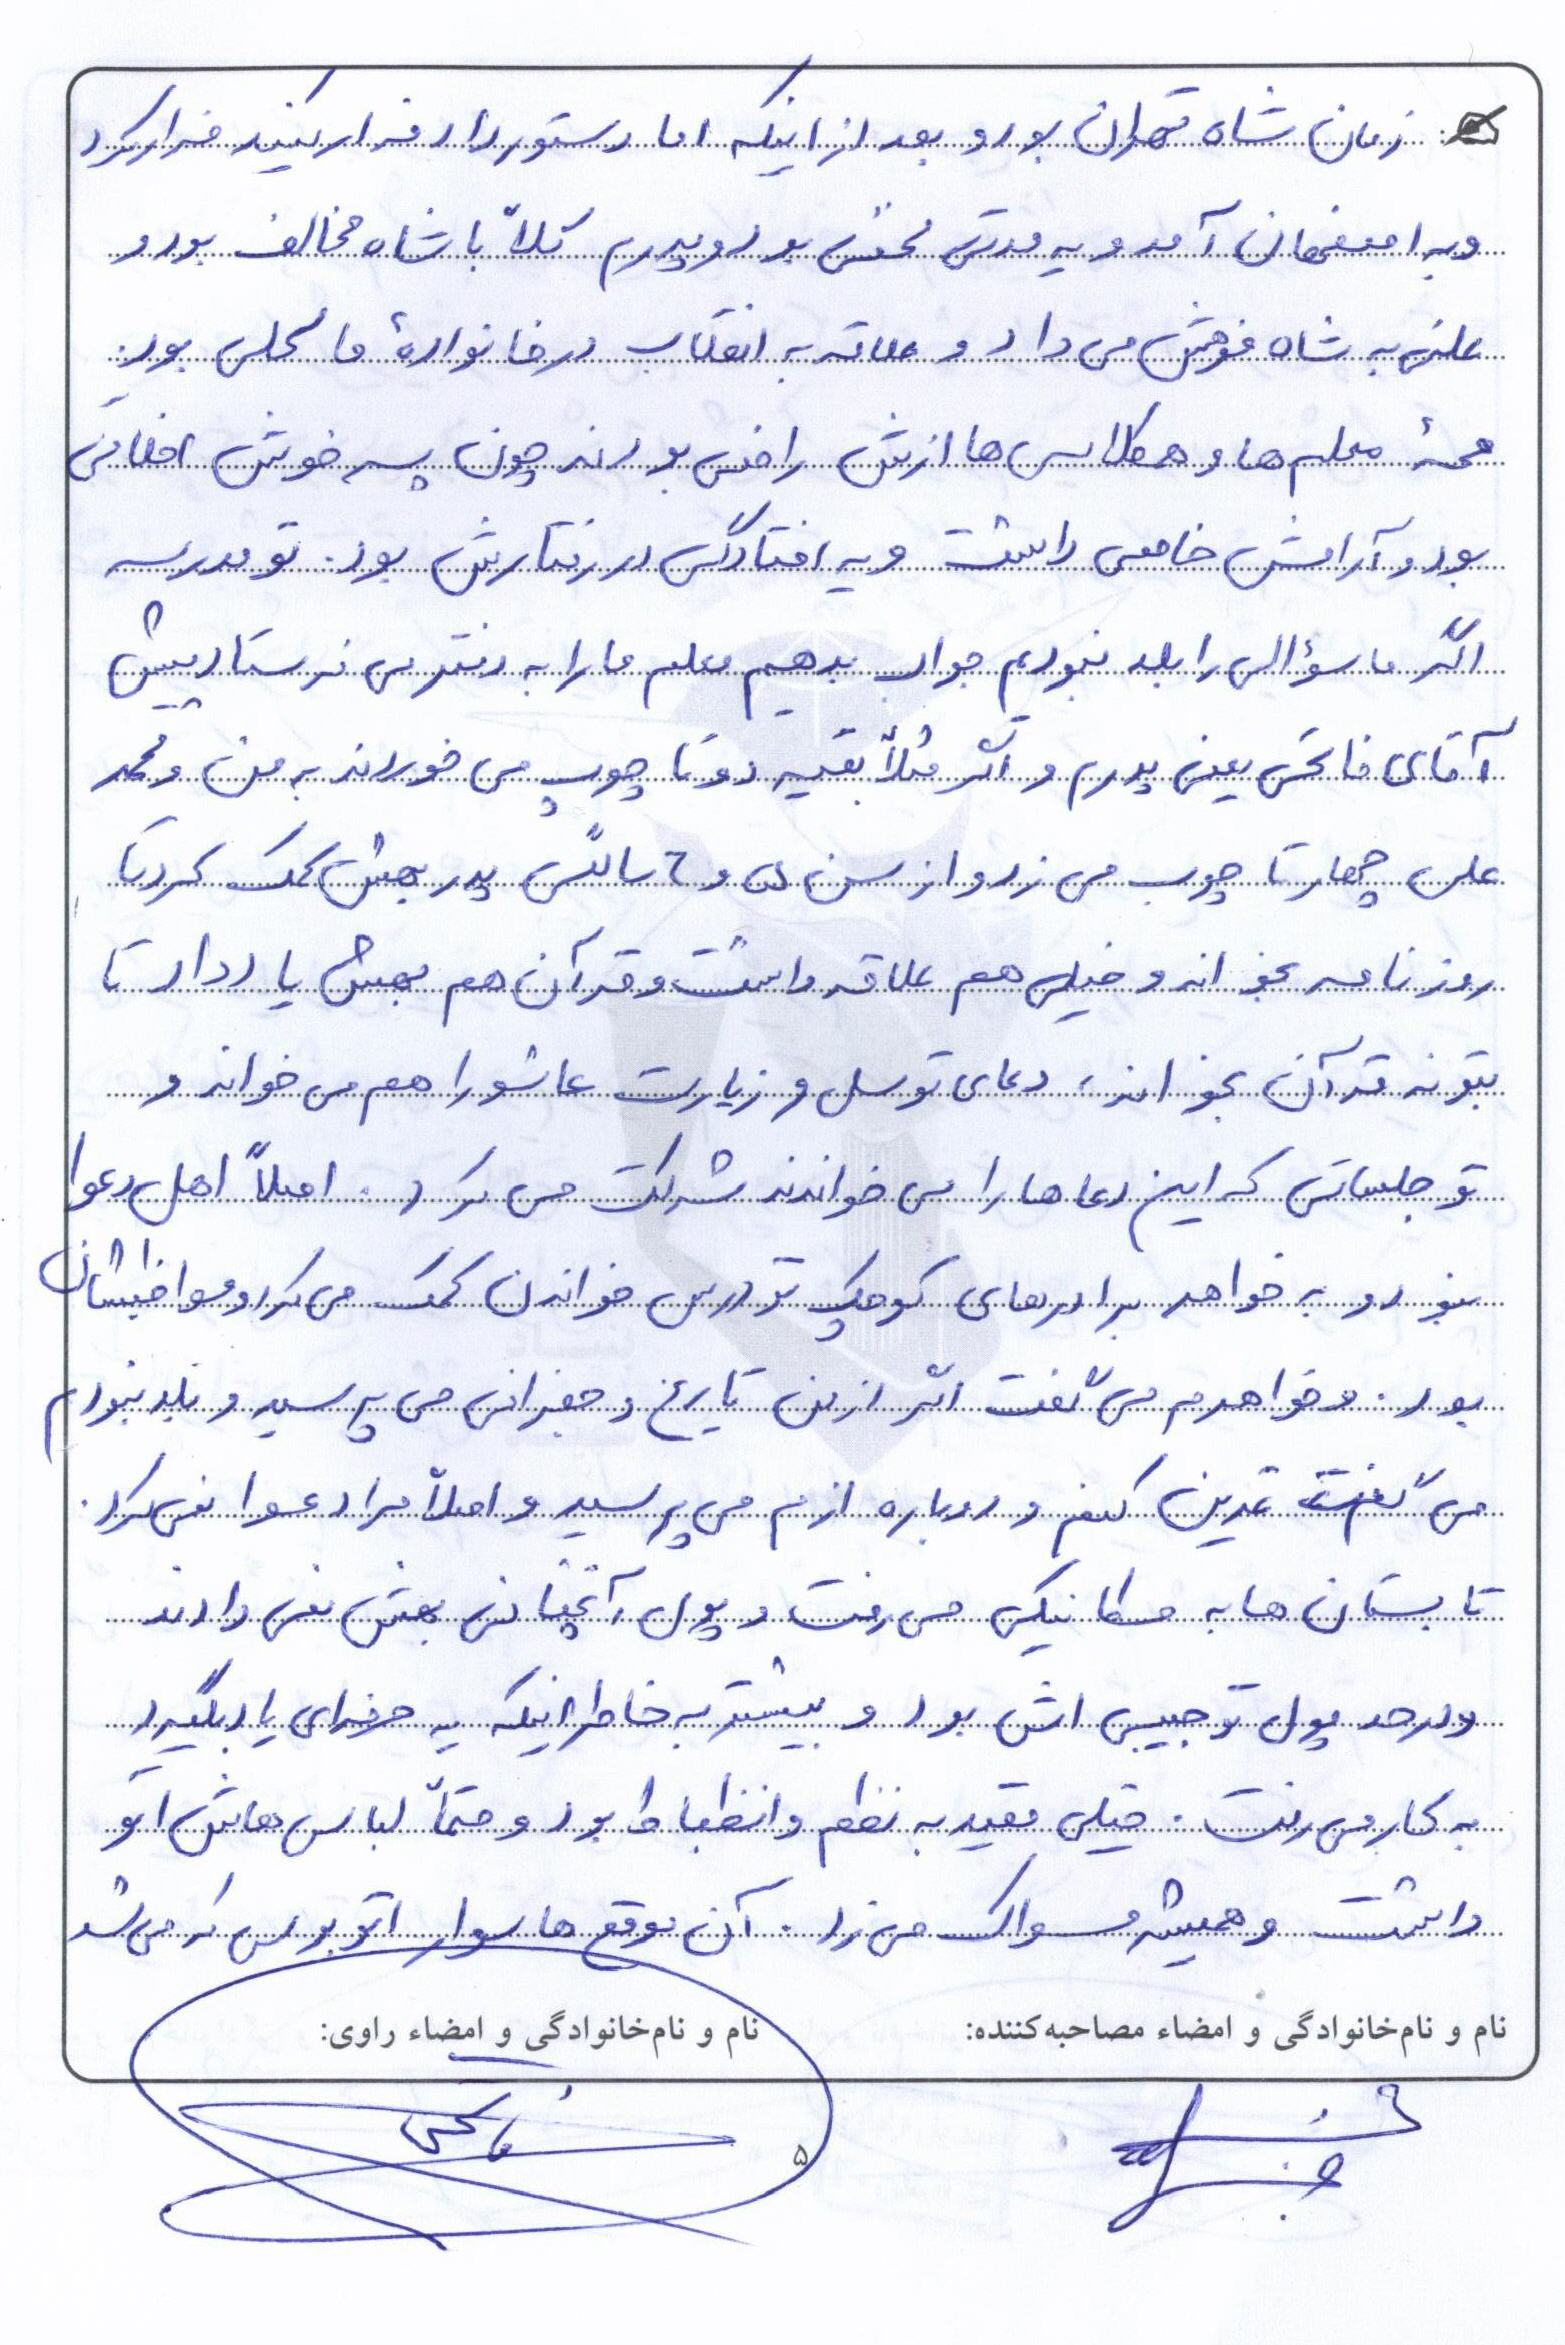 زمان شاه تهران بود و بعد از اینکه اما دستور داد فرار کنید فرار کرد
و به اصفهان آمد و یه مدتی مخفی بود و پدرم کلاً با شاه مخالف بود و
علنی به شاه فحش می داد و علاقه به انقلاب در خانوادهٔ ما محلی بود.
همهٔ معلم ها و همکلاسی ها ازش راضی بودند چون پسر خوش اخلاقی
بود و آرامش خاصی داشت و یه افتادگی در رفتارش بود. تو مدرسه
اگر ما سؤالی را بلد نبودیم جواب بدهیم معلم ما را به دفتر می فرستاد پیش
آقای فاتحی یعنی پدرم و اگر مثلاً بقیه دو تا چوب می خوردند به من و محمد
علی چهار تا چوب می زد و از سن ۵ و ۶ سالگی پدر بهش کمک کرد تا
روزنامه بخواند و خیلی هم علاقه داشت و قرآن هم بهش یاد داد تا
بتونه قرآن بخواند، دعای توسل و زیارت عاشورا هم می خواند و
تو جلساتی که این دعاها را می خواندند شرکت می کرد. اصلاً اهل دعوا
نبود و به خواهر برادرهای کوچک تو درس خواندن کمک می کرد و مواظبشان
بود. و خواهرم می گفت اگر از من تاریخ و جغرافی می پرسید و بلد نبودم
می گفت تمرین کنم و دوباره ازم می پرسید و اصلاً مرا دعوا نمی کرد.
تابستان ها به مکانیکی می رفت و پول آنچنانی بهش نمی دادند
و در حد پول تو جیبی اش بود و بیشتر به خاطر اینکه یه حرفه‌ای یاد بگیرد
به کار می رفت. خیلی مقید به نظم و انظباط بود و حتماً لباس هاش اتو
داشت و همیشه مسواک می زد. آن موقع ها سوار اتوبوس که می شد
نام و نام‌خانوادگی و امضاء مصاحبه‌کننده: نام و نام‌خانوادگی و امضاء راوی:
فاتحی
۵